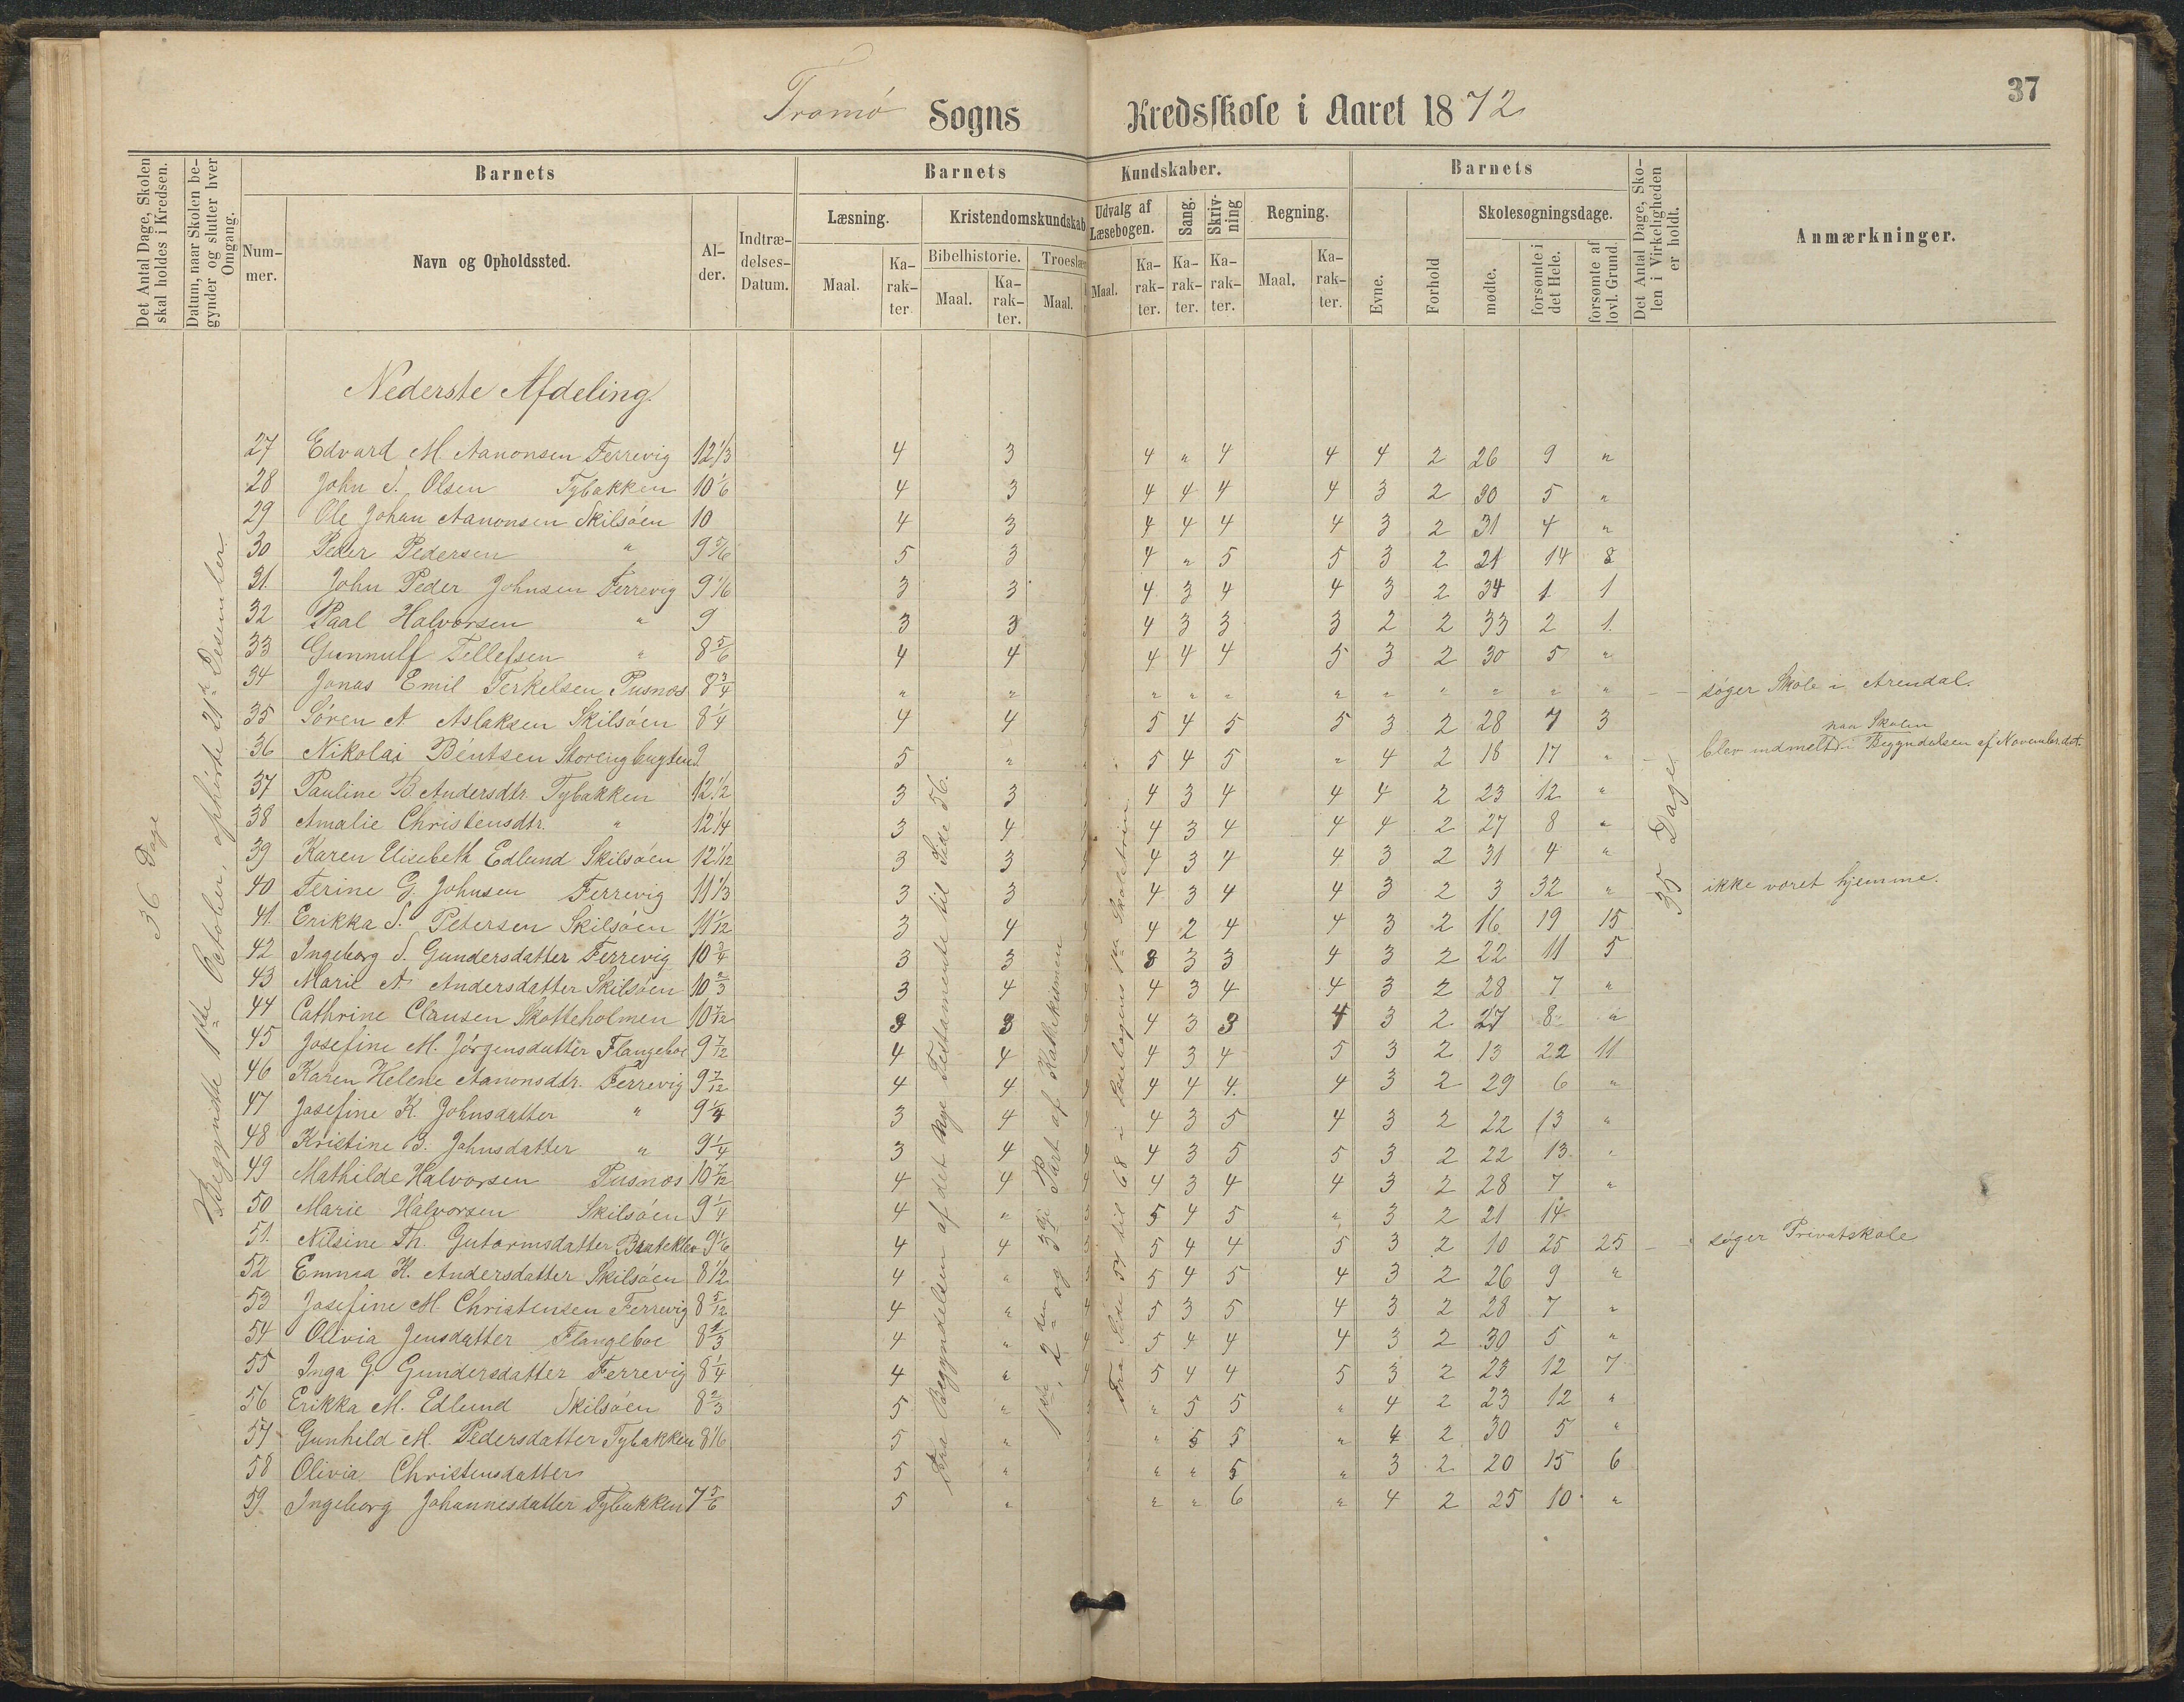 37
Tromø Sogns Kredsskole i Aaret 1872
Det Antal Dage, Skolen skal holdes i Kredsen.
Datum, naar Skolen begynder og slutter hver Omgang.
Barnets
Nummer.
Navn og Opholdssted.
Alder.
Indtrædelses-Datum.
Barnets Kundskaber.
Læsning.
Maal.
Karakter.
Kristendomskundskab
Bibelhistorie.
Maal.
Karakter.
Troeslær
Maal.
Udvalg af Læsebogen.
Maal.
Karakter.
Sang.
Karakter.
Skrivning
Karakter.
Regning.
Maal.
Karakter.
Barnets
Evne.
Forhold
Skolesøgningsdage.
mødte.
forsømte i det Hele.
forsømte af lovl. Grund.
Det Antal Dage, Skolen i Virkeligheden er holdt.
Anmærkninger.
36 Dage
Begyndte 1ste October, ophørte 21de Desember.
Fra Begyndelsen af det Nye Testamente til Side 56.
1ste, 2den og 3die Part af Katekismen
35 Dage
Nederste Afdeling.
27 Edvard M. Aanonsen Ferrevig 12 1/3 4 3 4 " 4 4 4 2 26 9 "
28 John S. Olsen Tybakken 10 1/6 4 3 4 4 4 4 3 2 30 5 "
29 Ole Johan Aanonsen Skilsøen 10 4 3 4 4 4 4 3 2 31 4 "
30 Peder Pedersen " 9 5/6 5 3 4 " 5 5 3 2 21 14 8
31. John Peder Johnsen Ferrevig 9 1/6 3 3 4 3 4 4 3 2 34 1 1
32 Paal Halvorsen " 9 3 3 4 3 3 3 2 2 33 2 1.
33 Gunnulf Tellefsen " 8 5/6 4 4 4 4 4 5 3 2 30 5 "
34 Jonas Emil Terkelsen Pusnes 8 3/4 " " " " " " " " " " " søger Skole i Arendal.
35 Søren A. Aslaksen Skilsøen 8 1/4 4 4 5 4 5 5 3 2 28 7 3
36 Nikolai Bentsen Storengbugten 9 5 " 5 4 5 " 4 2 18 17 " blev indmeldt paa Skolen i Begyndelsen af November det.
37 Pauline B. Andersdtr. Tybakken 12 1/2 3 3 4 3 4 4 4 2 23 12 "
38 Amalie Christensdtr. " 12 1/4 3 4 4 3 4 4 4 2 27 8 "
39 Karen Elisebeth Edlund Skilsøen 12 1/12 3 3 4 3 4 4 3 2 31 4 "
40 Terine G. Johnsen Ferrevig 11 1/3 3 3 4 3 4 4 3 2 3 32 " ikke været hjemme.
41. Erikka S. Petersen Skilsøen 11 1/12 3 4 4 2 4 4 3 2 16 19 15
42 Ingeborg S. Gundersdatter Ferrevig 10 3/4 3 3 3 3 3 4 3 2 22 11 5
43 Marie A. Andersdatter Skilsøen 10 2/3 3 4 4 3 4 4 3 2 28 7 "
44 Cathrine Clausen Skotteholmen 10 7/12 3 3 4 3 3 4 3 2 27 8 "
45 Josefine M. Jørgensdatter Flangeboe 9 7/12 4 4 4 3 4 5 3 2 13 22 11
46 Karen Helene Aanonsdtr. Ferrevig 9 7/12 4 4 4 4 4. 4 3 2 29 6 "
47 Josefine K. Johnsdatter " 9 1/4 3 4 4 3 5 4 3 2 22 13 "
48 Kristine B. Johnsdatter " 9 1/4 3 4 4 3 5 5 3 2 22 13 "
49 Mathilde Halvorsen Pusnes 10 7/12 4 4 4 3 4 4 3 2 28 7 "
50 Marie Halvorsen Skilsøen 9 1/4 4 " 5 4 5 " 3 2 21 14
51. Nilsine Th. Gutormsdatter Bratteklev 9 1/6 4 4 5 4 4 5 3 2 10 25 25 søger Privatskole
52 Emma H. Andersdatter Skilsøen 8 1/2 4 " 5 4 5 4 3 2 26 9 "
53 Josefine M. Christensen Ferrevig 8 5/12 4 " 5 3 5 4 3 2 28 7 "
54 Olivia Jensdatter Flangeboe 8 1/3 4 " 5 4 4 4 3 2 30 5 "
55 Inga G. Gundersdatter Ferrevig 8 1/4 4 " 5 4 4 5 3 2 23 12 7
56 Erikka M. Edlund Skilsøen 8 2/3 5 " " 5 5 " 4 2 23 12 "
57 Gunhild M. Pedersdatter Tybakken 8 1/6 5 " " 5 5 " 4 2 30 5 "
58 Olivia Christensdatter 5 " " " 5 " 3 2 20 15 6
59. Ingeborg Johannesdatter Tybakken 7 5/6 5 " " " 6 " 4 2 25 10 "